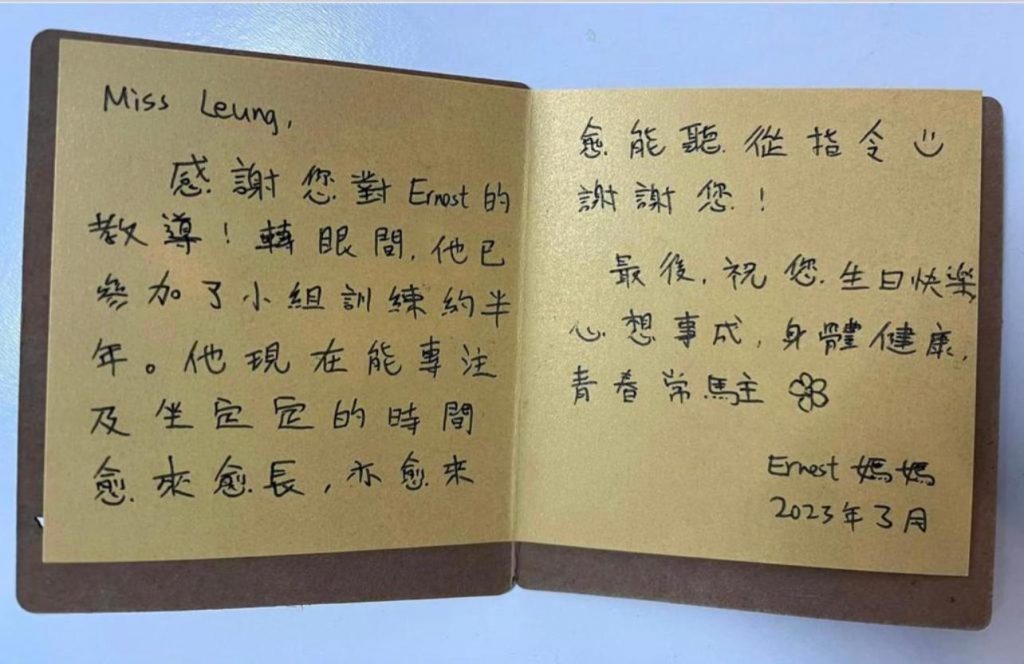 Miss Leung,
感謝您對Ernest的
教導！轉眼間,他已
參加了小組訓練約半
年。他現在能專注
及坐定定的時間
愈來愈長,亦愈來
愈能聽從指令
謝謝您！
最後,祝您生日快樂
心想事成,身體健康,
青春常駐
Ernest 媽媽
2023年3月